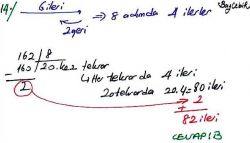 14-) 6 ileri
2 geri
⇒ 8 adımda 4 ilerler
162 | 8
160 | 20. kez tekrar
2
4 Her tekrarda 4 ileri
20 tekrarda 20.4=80 ileri
+ 2
82 ileri
CEVAP B